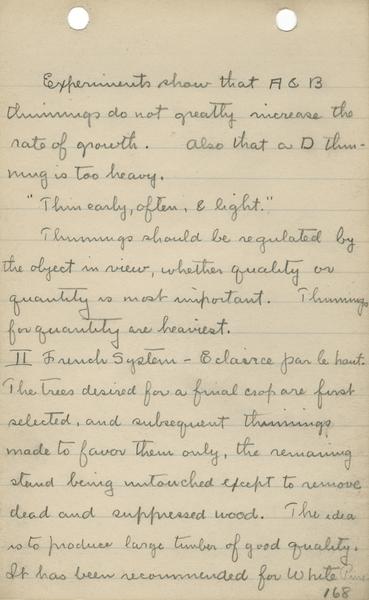 Experiments show that A & B
thinnings do not greatly increase the
rate of growth. Also that a D thin-
ning is too heavy.
"Thin early, often, & light."
Thinnings should be regulated by
the object in view, whether quality or
quantity is most important. Thinnings
for quantity are heaviest.
II French System - Eclairce par le haut.
The trees desired for a final crop are first
selected, and subsequent thinnings
made to favor them only, the remaining
stand being untouched except to remove
dead and suppressed wood. The idea
is to produce large timber of good quality.
It has been recommended for White Pine
168